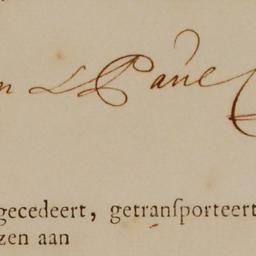 n L Paul
gecedeert, getransporteert
zen aan